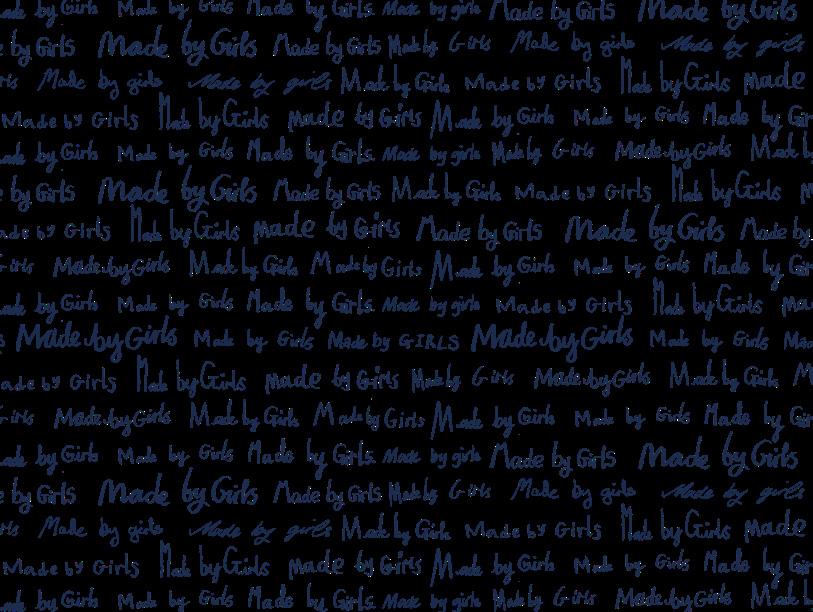 Made by Girls Made by Girls Made by Girls Made by girls Made by Girls Made by Girls
by Girls Made by Girls Made by Girls Made by Girls Made by girls Made by girls
Made by girls Made by girls Made by Girls Made by Girls Made by Girls Made
Made by Girls Made by Girls Made by Girls Made by Girls Made by Girls Made by
by Girls Made by Girls Made by Girls Made by girls Made by Girls Made by Girls Made
by Girls Made by Girls Made by Girls Made by Girls Made by Girls Made by Girls
by Girls Made by Girls Made by Girls Made by Girls Made by Girls Made by
Girls Made by Girls Made by Girls Made by Girls Made by Girls Made by Girls Made by
by Girls Made by Girls Made by Girls Made by girls Made by Girls Made by Girls
Made by Girls Made by Girls Made by GIRLS Made by Girls Made by Girls
by Girls Made by Girls Made by Girls Made by Girls Made by Girls Made by Girls
Girls Made by Girls Made by Girls Made by Girls Made by Girls Made by Girls Made by
by Girls Made by Girls Made by Girls Made by girls Made by Girls Made by Girls
by Girls Made by Girls Made by Girls Made by Girls Made by girls Made by girls
Made by girls Made by girls Made by Girls Made by Girls Made by Girls Made
Made by Girls Made by Girls Made by Girls Made by Girls Made by Girls Made by
by Girls Made by Girls Made by Girls Made by girls Made by Girls Made by Girls Made